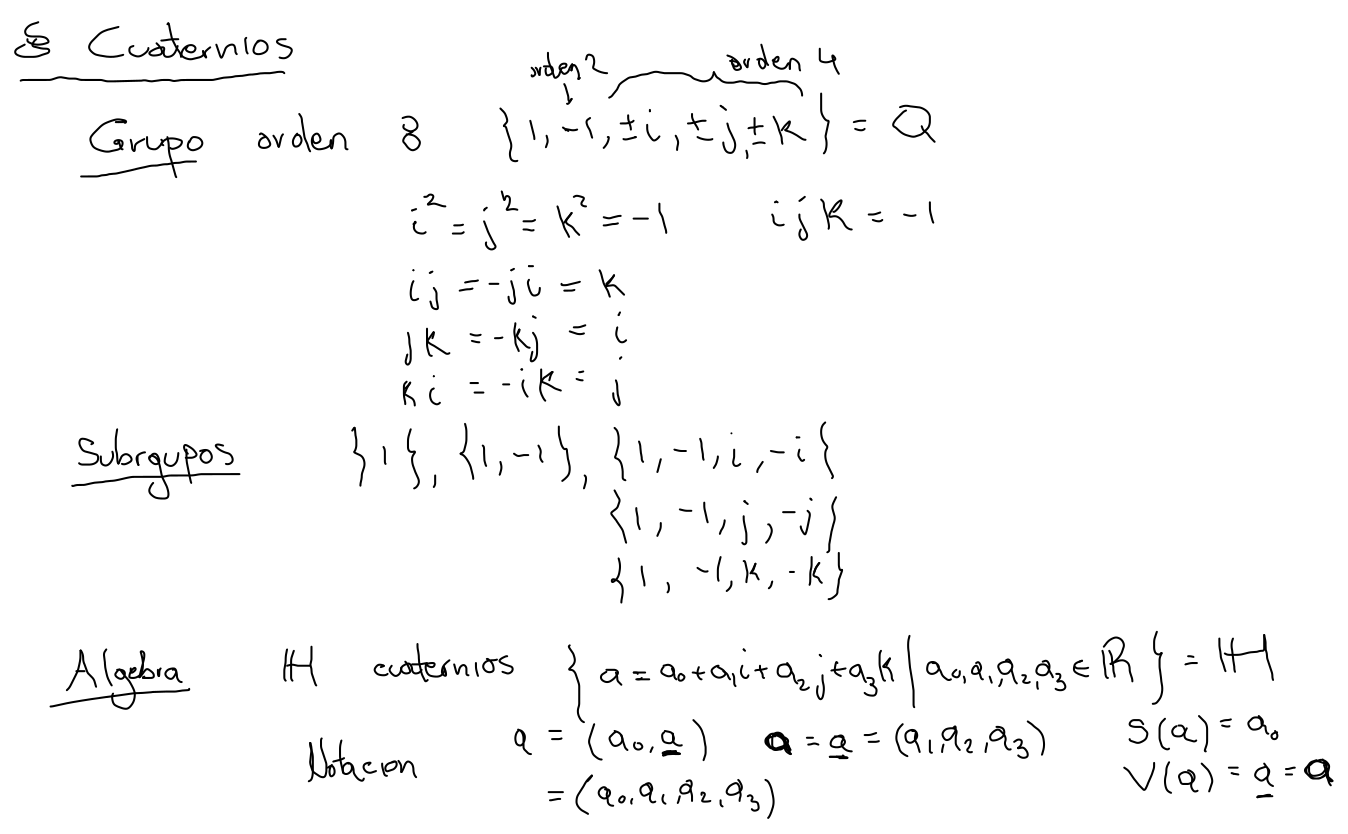 § Cuaternios
orden 2 orden 4
Grupo orden 8 {1, -1, ±i, ±j, ±k} = Q
i² = j² = k² = -1 ijk = -1
ij = -ji = k
jk = -kj = i
ki = -ik = j
Subrgupos {1}, {1, -1}, {1, -1, i, -i}
{1, -1, j, -j}
{1, -1, k, -k}
Algebra ℍ cuaternios { a = a₀ + a₁i + a₂j + a₃k | a₀, a₁, a₂, a₃ ∈ ℝ } = ℍ
Notacion a = (a₀, a̲) 𝐚 = a̲ = (a₁, a₂, a₃) S(a) = a₀
= (a₀, a₁, a₂, a₃) V(a) = a̲ = 𝐚